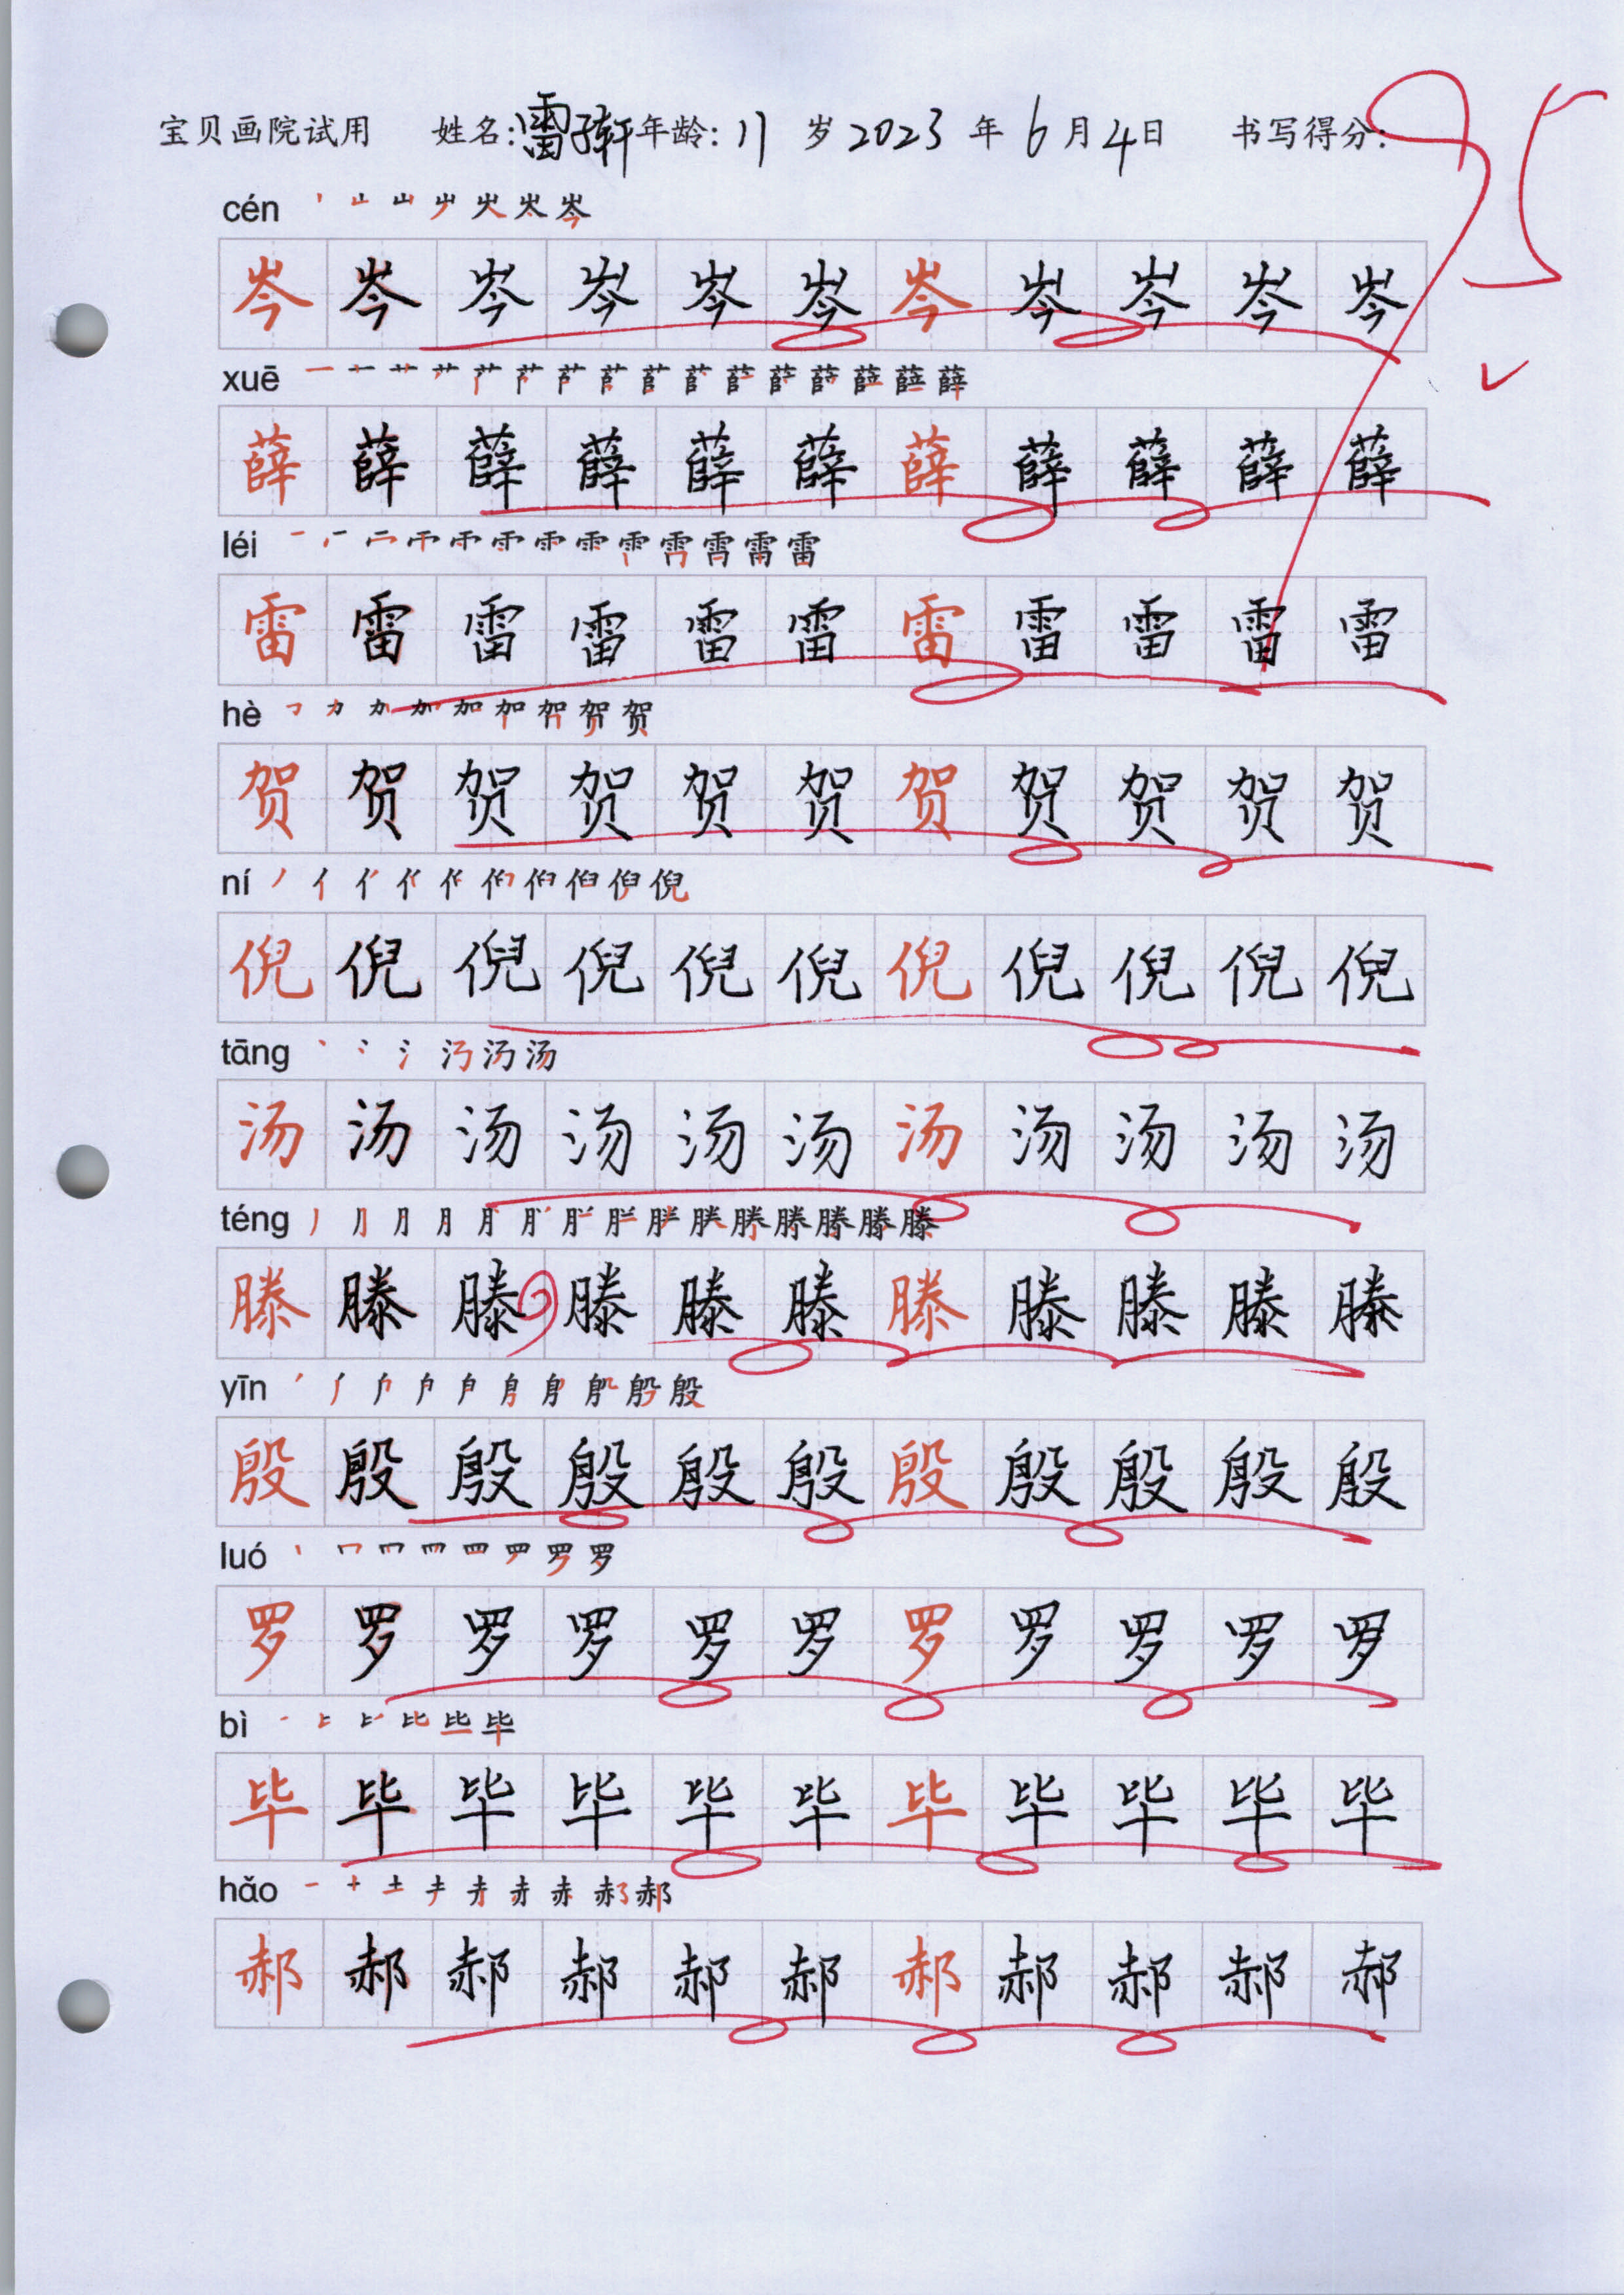 宝贝画院试用 姓名:雷子轩 年龄:11 岁 2023 年 6 月 4 日 书写得分: 95
cén
岑 岑 岑 岑 岑 岑 岑 岑 岑 岑 岑
xuē
薛 薛 薛 薛 薛 薛 薛 薛 薛 薛 薛
léi
雷 雷 雷 雷 雷 雷 雷 雷 雷 雷 雷
hè
贺 贺 贺 贺 贺 贺 贺 贺 贺 贺 贺
ní
倪 倪 倪 倪 倪 倪 倪 倪 倪 倪 倪
tāng
汤 汤 汤 汤 汤 汤 汤 汤 汤 汤 汤
téng
滕 滕 滕 滕 滕 滕 滕 滕 滕 滕 滕
yīn
殷 殷 殷 殷 殷 殷 殷 殷 殷 殷 殷
luó
罗 罗 罗 罗 罗 罗 罗 罗 罗 罗 罗
bì
毕 毕 毕 毕 毕 毕 毕 毕 毕 毕 毕
hǎo
郝 郝 郝 郝 郝 郝 郝 郝 郝 郝 郝